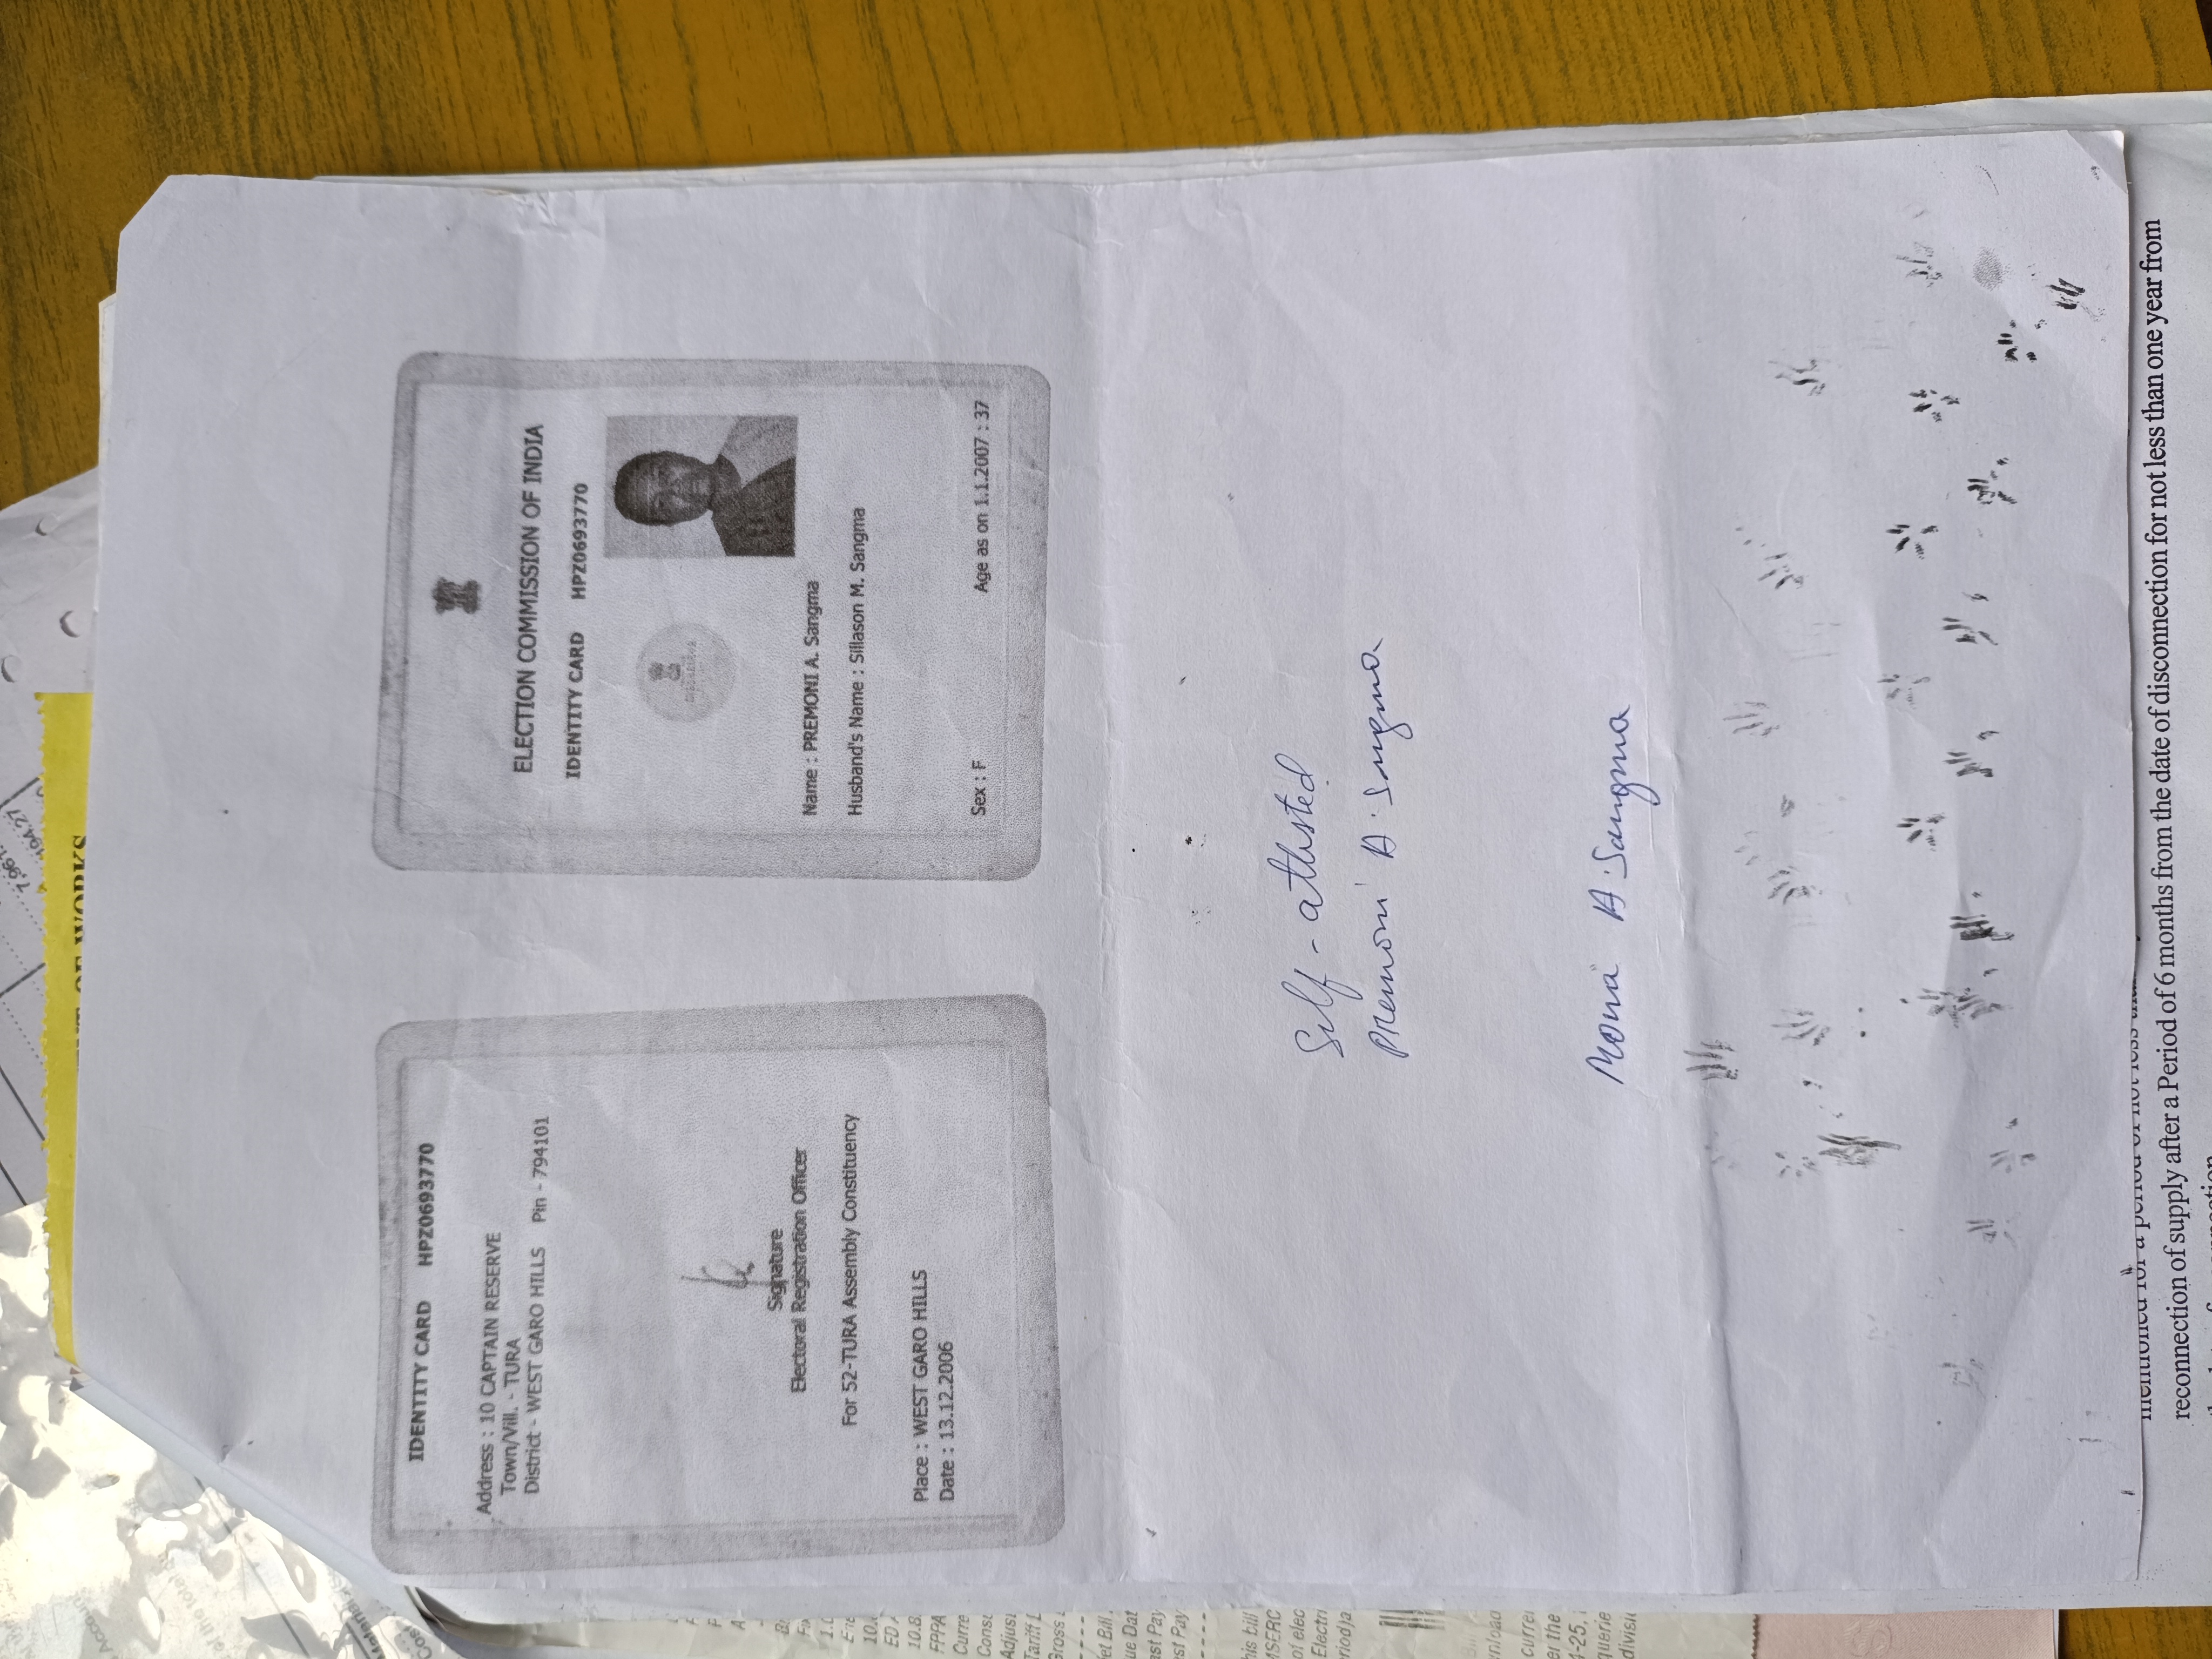 ELECTION COMMISSION OF INDIA
IDENTITY CARD HPZ0693770
Name : PREMONI A. Sangma
Husband's Name : Sillason M. Sangma
Sex : F Age as on 1.1.2007 : 37
IDENTITY CARD HPZ0693770
Address : 10 CAPTAIN RESERVE
Town/Vill. - TURA
District - WEST GARO HILLS Pin - 794101
Signature
Electoral Registration Officer
For 52-TURA Assembly Constituency
Place : WEST GARO HILLS
Date : 13.12.2006
Self - attested
Premoni A. Sangma
Moni A. Sangma
reconnection of supply after a Period of 6 months from the date of disconnection for not less than one year from
OF WORKS